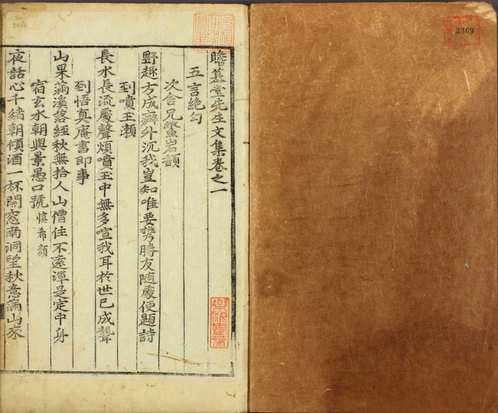 瞻慕堂先生文集卷之一
五言絶句
次舍兄
韻
野趣方成癖外沉我豈知唯要携勝友随處便題詩
到噴玉瀬
長水長流處聲煩噴玉中無多喧我耳於世已成聾
到悟真庵書即事
山果滿溪落經秋無拾人山僧住不遠運是定中身
宿玄水朝與景愚口號
夜話心千緒朝傾酒一杯開窓雨洞望秋意滿山來
2369